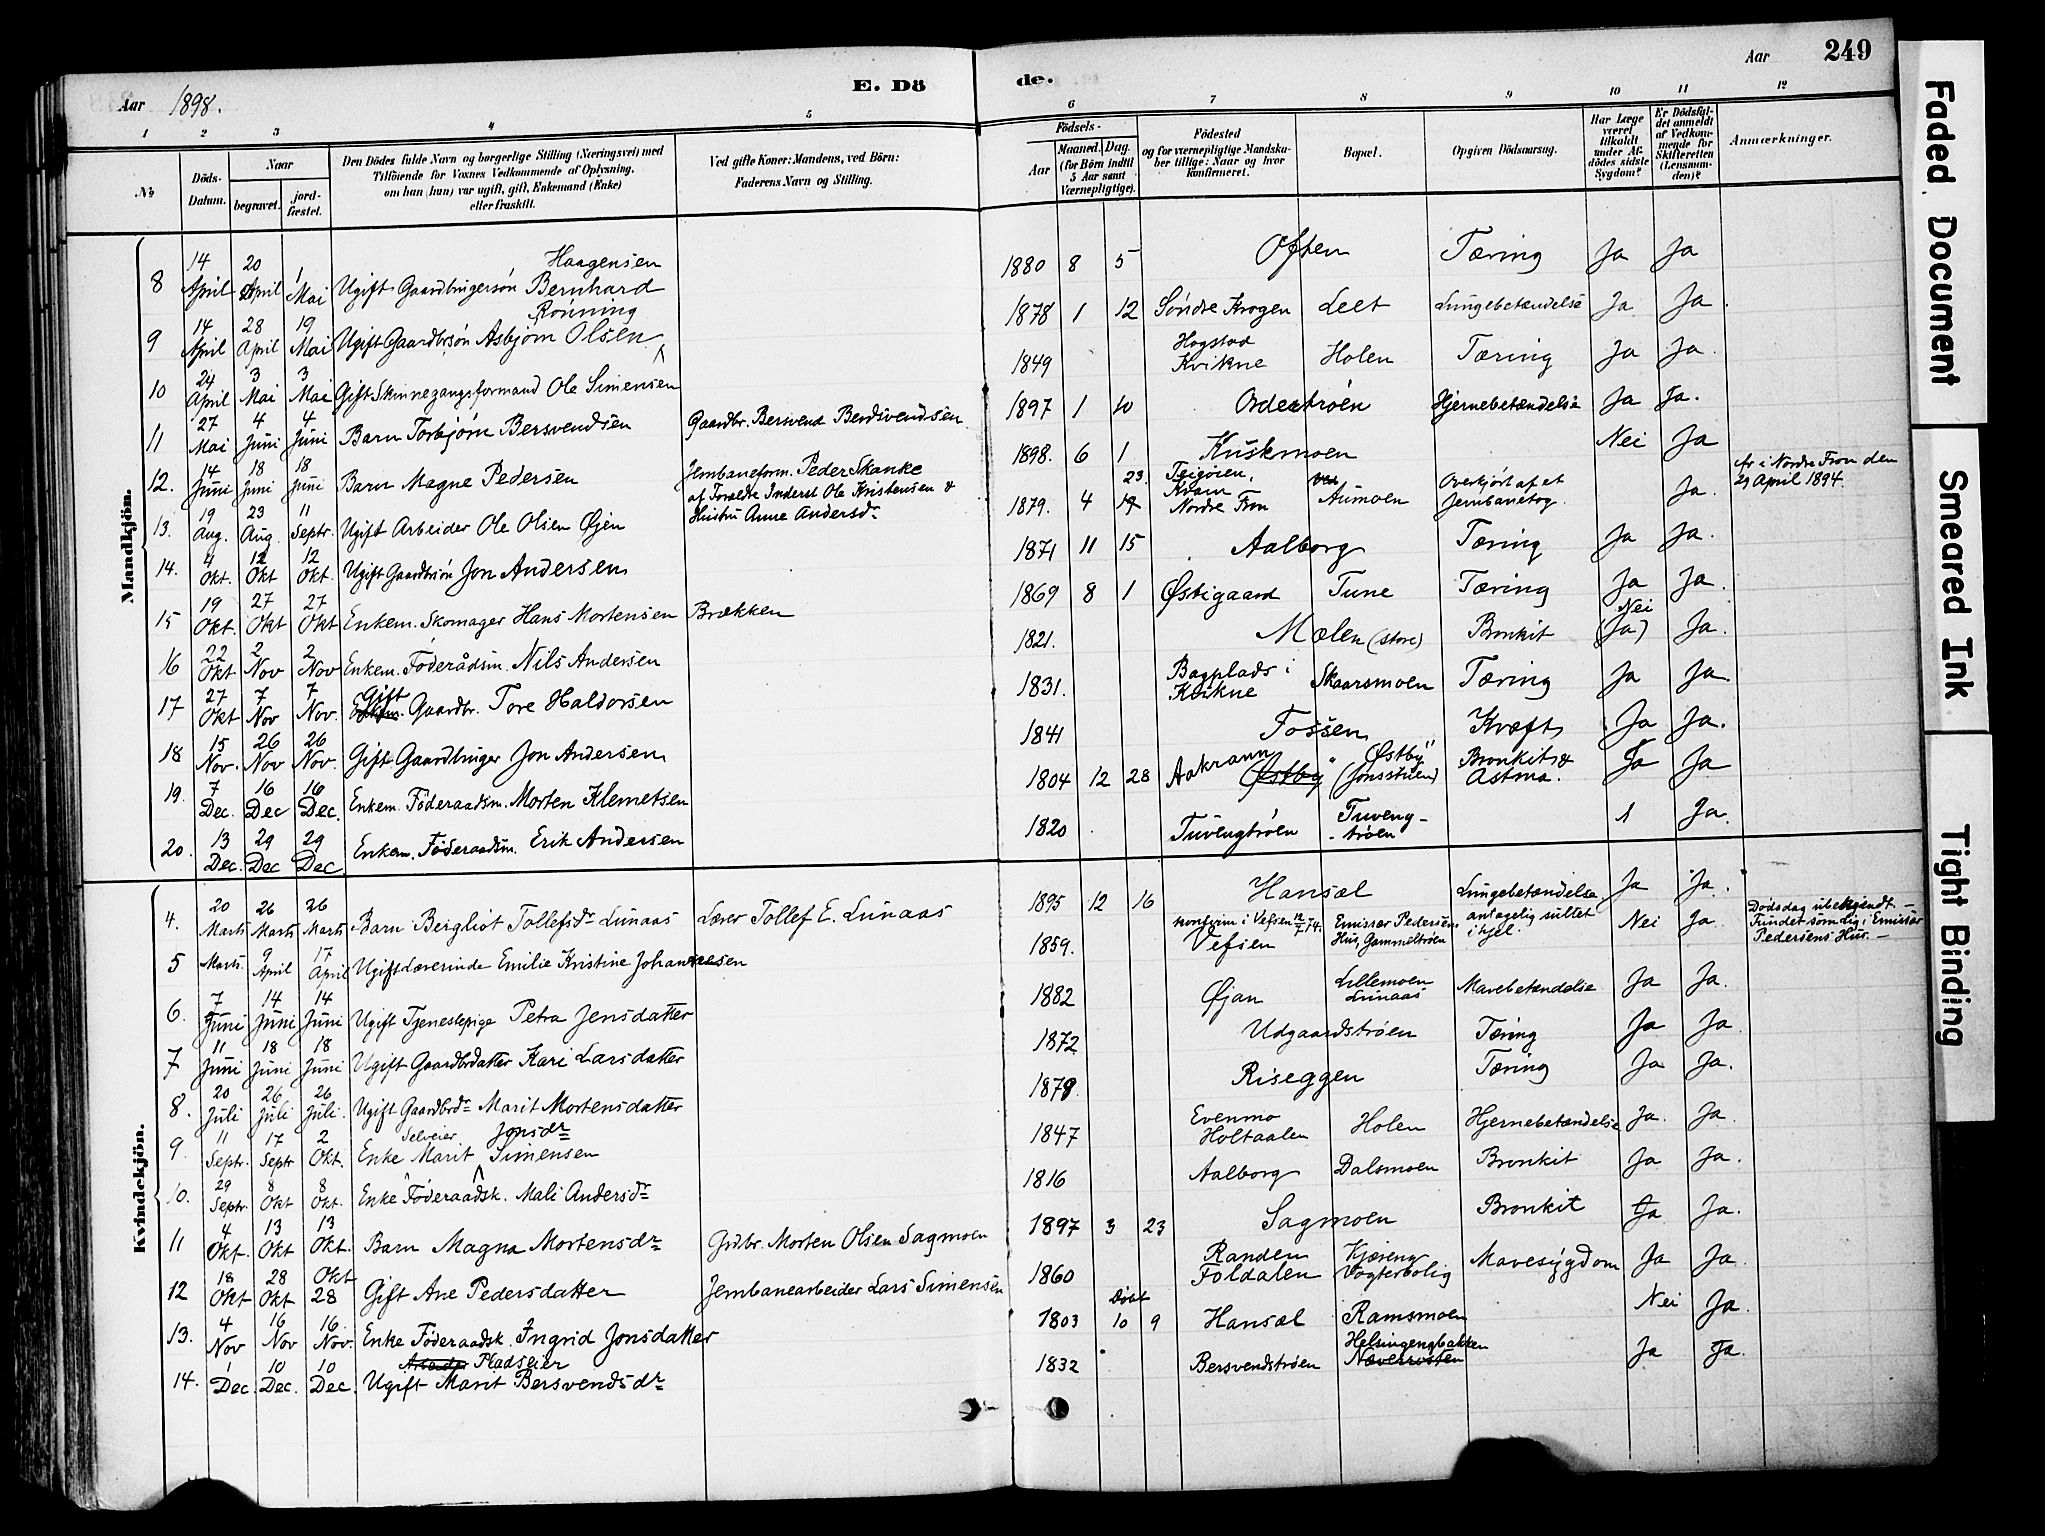 Aar 1898.
E. Dö
de.
Aar 249
1 2 3 4 5
6 7 8 9 10 11 12
No.
Döds-Datum.
Naar
begravet.
jord-fæstet.
Den Dödes fulde Navn og borgerlige Stilling (Næringsvei) med
Tilföiende for Voxnes Vedkommende af Oplysning,
om han (hun) var ugift, gift, Enkemand (Enke)
eller fraskilt.
Ved gifte Koner: Mandens, ved Börn:
Faderens Navn og Stilling.
Födsels-
Aar
Maaned. Dag.
(for Börn indtil
5 Aar samt
Værnepligtige).
Födested
og for værnepligtige Mandska-
ber tillige: Naar og hvor
konfirmeret.
Bopæl.
Opgiven Dödsaarsag.
Har Læge
været
tilkaldt
under Af-
dödes sidste
Sygdom?
Er Dödsfal-
det anmeldt
af Vedkom-
mende for
Skifteretten
(Lensman-
den)?
Anmærkninger.
Mandkjön.
8 14 April 20 April 1 Mai Ugift Gaardbrugersøn Bernhard Haagensen 1880 8 5 Often Tæring Ja Ja
9 14 April 28 April 19 Mai Ugift Gaardbrsøn Asbjørn Olsen Rønning 1878 1 12 Søndre Krogen Leet Lungebetændelse Ja Ja.
10 24 April 3 Mai 3 Mai Gift Skinnegangsformand Ole Simensen 1849 Hogstad Kvikne Holen Tæring Ja Ja.
11 27 Mai 4 Juni 4 Juni Barn Torbjørn Bersvendsen Gaardbr. Bersvend Berdsvendsen 1897 1 10 Orderstrøen Hjernebetændelse Ja Ja.
12. 14 Juni 18 Juni 18 Juni Barn Magne Pedersen Jernbaneform. Peder Skanke 1898. 6 1 Kuskmoen Nei Ja
13. 19 Aug. 23 Aug. 11 Septr. Ugift Arbeider Ole Olsen Øjen af Forældre Inderst Ole Kristensen & Hustru Anne Andersdr. 1879. 4 23. 19 Teigøien, Kvam Nordre Fron Aumoen Overkjørt af et Jernbanetog. Ja. i Nordre Fron den 29 April 1894
14. 4 Okt. 12 Okt 12 Okt. Ugift Gaardbrsøn Jon Andersen 1871 11 15 Aalborg Tæring Ja Ja.
15 19 Okt. 27 Okt 27 Okt Enkem. Skomager Hans Mortensen Brækken 1869 8 1 Østigaard Tune Tæring Ja Ja.
16 22 Okt 2 Nov 2 Nov Enkem. Føderådsm. Nils Andersen 1821. Mælen (store) Bronkit Nei (Ja) Ja.
17 27 Okt 7 Nov 7 Nov. Gift Gaardbr. Tore Haldorsen 1831. Bagplads i Kvikne Skaarsmoen Tæring Ja Ja
18 15 Nov. 26 Nov 26 Nov. Gift Gaardbruger Jon Andersen 1841 Tossen Kræft Ja Ja.
19. 7 Dec. 16 Dec 16 Dec. Enkem. Føderaadsm. Morten Klemetsen 1804 12 28 Aakrann Østby "Østby" (Jonsstuen) Bronkit & Astma. Ja Ja
20. 13 Dec. 29 Dec 29 Dec Enkem. Føderaadsm. Erik Andersen 1820 Tuvengtrøen Tuveng-trøen Ja.
Kvindekjön.
4. 20 Marts 26 Marts 26 Marts Barn Bergliot Tollefsdr. Lunaas Lærer Tollef E. Lunaas 1895 12 16 Hansæl Lungebetændelse Ja Ja.
5 Marts. 9 April 17 April Ugift Lærerinde Emilie Kristine Johannesen 1859. konfirm i Vefsen Vefsen Emissær Pedersens Hus, Gammeltrøen antagelig sultet ihjel. Nei Ja. Dødsdag ubekjendt.- Fundet som Lig i Emissær Pedersens Hus.-
6. 7 Juni 14 Juni 14 Juni Ugift Tjenestepige Petra Jensdatter 1882 Øjan Lillemoen Lunaas Mavebetændelse Ja Ja.
7 11 Juni 18 Juni 18 Juni Ugift Gaardbrdatter Kari Larsdatter 1872 Udgaardstrøen Tæring Ja Ja
8. 20 Juli 26 Juli 26 Juli. Ugift Gaardbrdr. Marit Mortensdatter 1878. Riseggen Tæring Ja Ja.
9. 11 Septr. 17 Septr 2 Okt. Enke Selveier Marit Jonsdr. Simensen 1847 Evenmo Holtaalen Holen Hjernebetændelse Ja. Ja.
10. 29 Septr. 8 Okt 8 Okt. Enke Føderaadsk. Mali Andersdr. 1816 Aalborg Dalsmoen Bronkit Ja Ja.
11 4 Okt. 13 Okt 13 Okt. Barn Magna Mortensdr. Grdbr. Morten Olsen Sagmoen 1897 3 23 Sagmoen Bronkit Ja Ja.
12 18 Okt 28 Okt Okt 28 Gift Ane Pedersdatter Jernbanearbeider Lars Simensen 1860 Randen Foldalen Kjøreng Vogterbolig Mavesygdom Ja Ja.
13. 4 Nov 16 Nov 16. Nov. Enke Føderaadsk. Ingrid Jonsdatter 1803 Døbt 10 9 Hansæl Ramsmoen Nei Ja.
14. 1 Dec. 10 Dec. 10 Dec. Ugift Arbeider Pladseier Marit Bersvendsdr. 1832 Bersvendstrøen Helsingengbakken Næverrosten Ja Ja.
Faded Document
Smeared Ink
Tight Binding